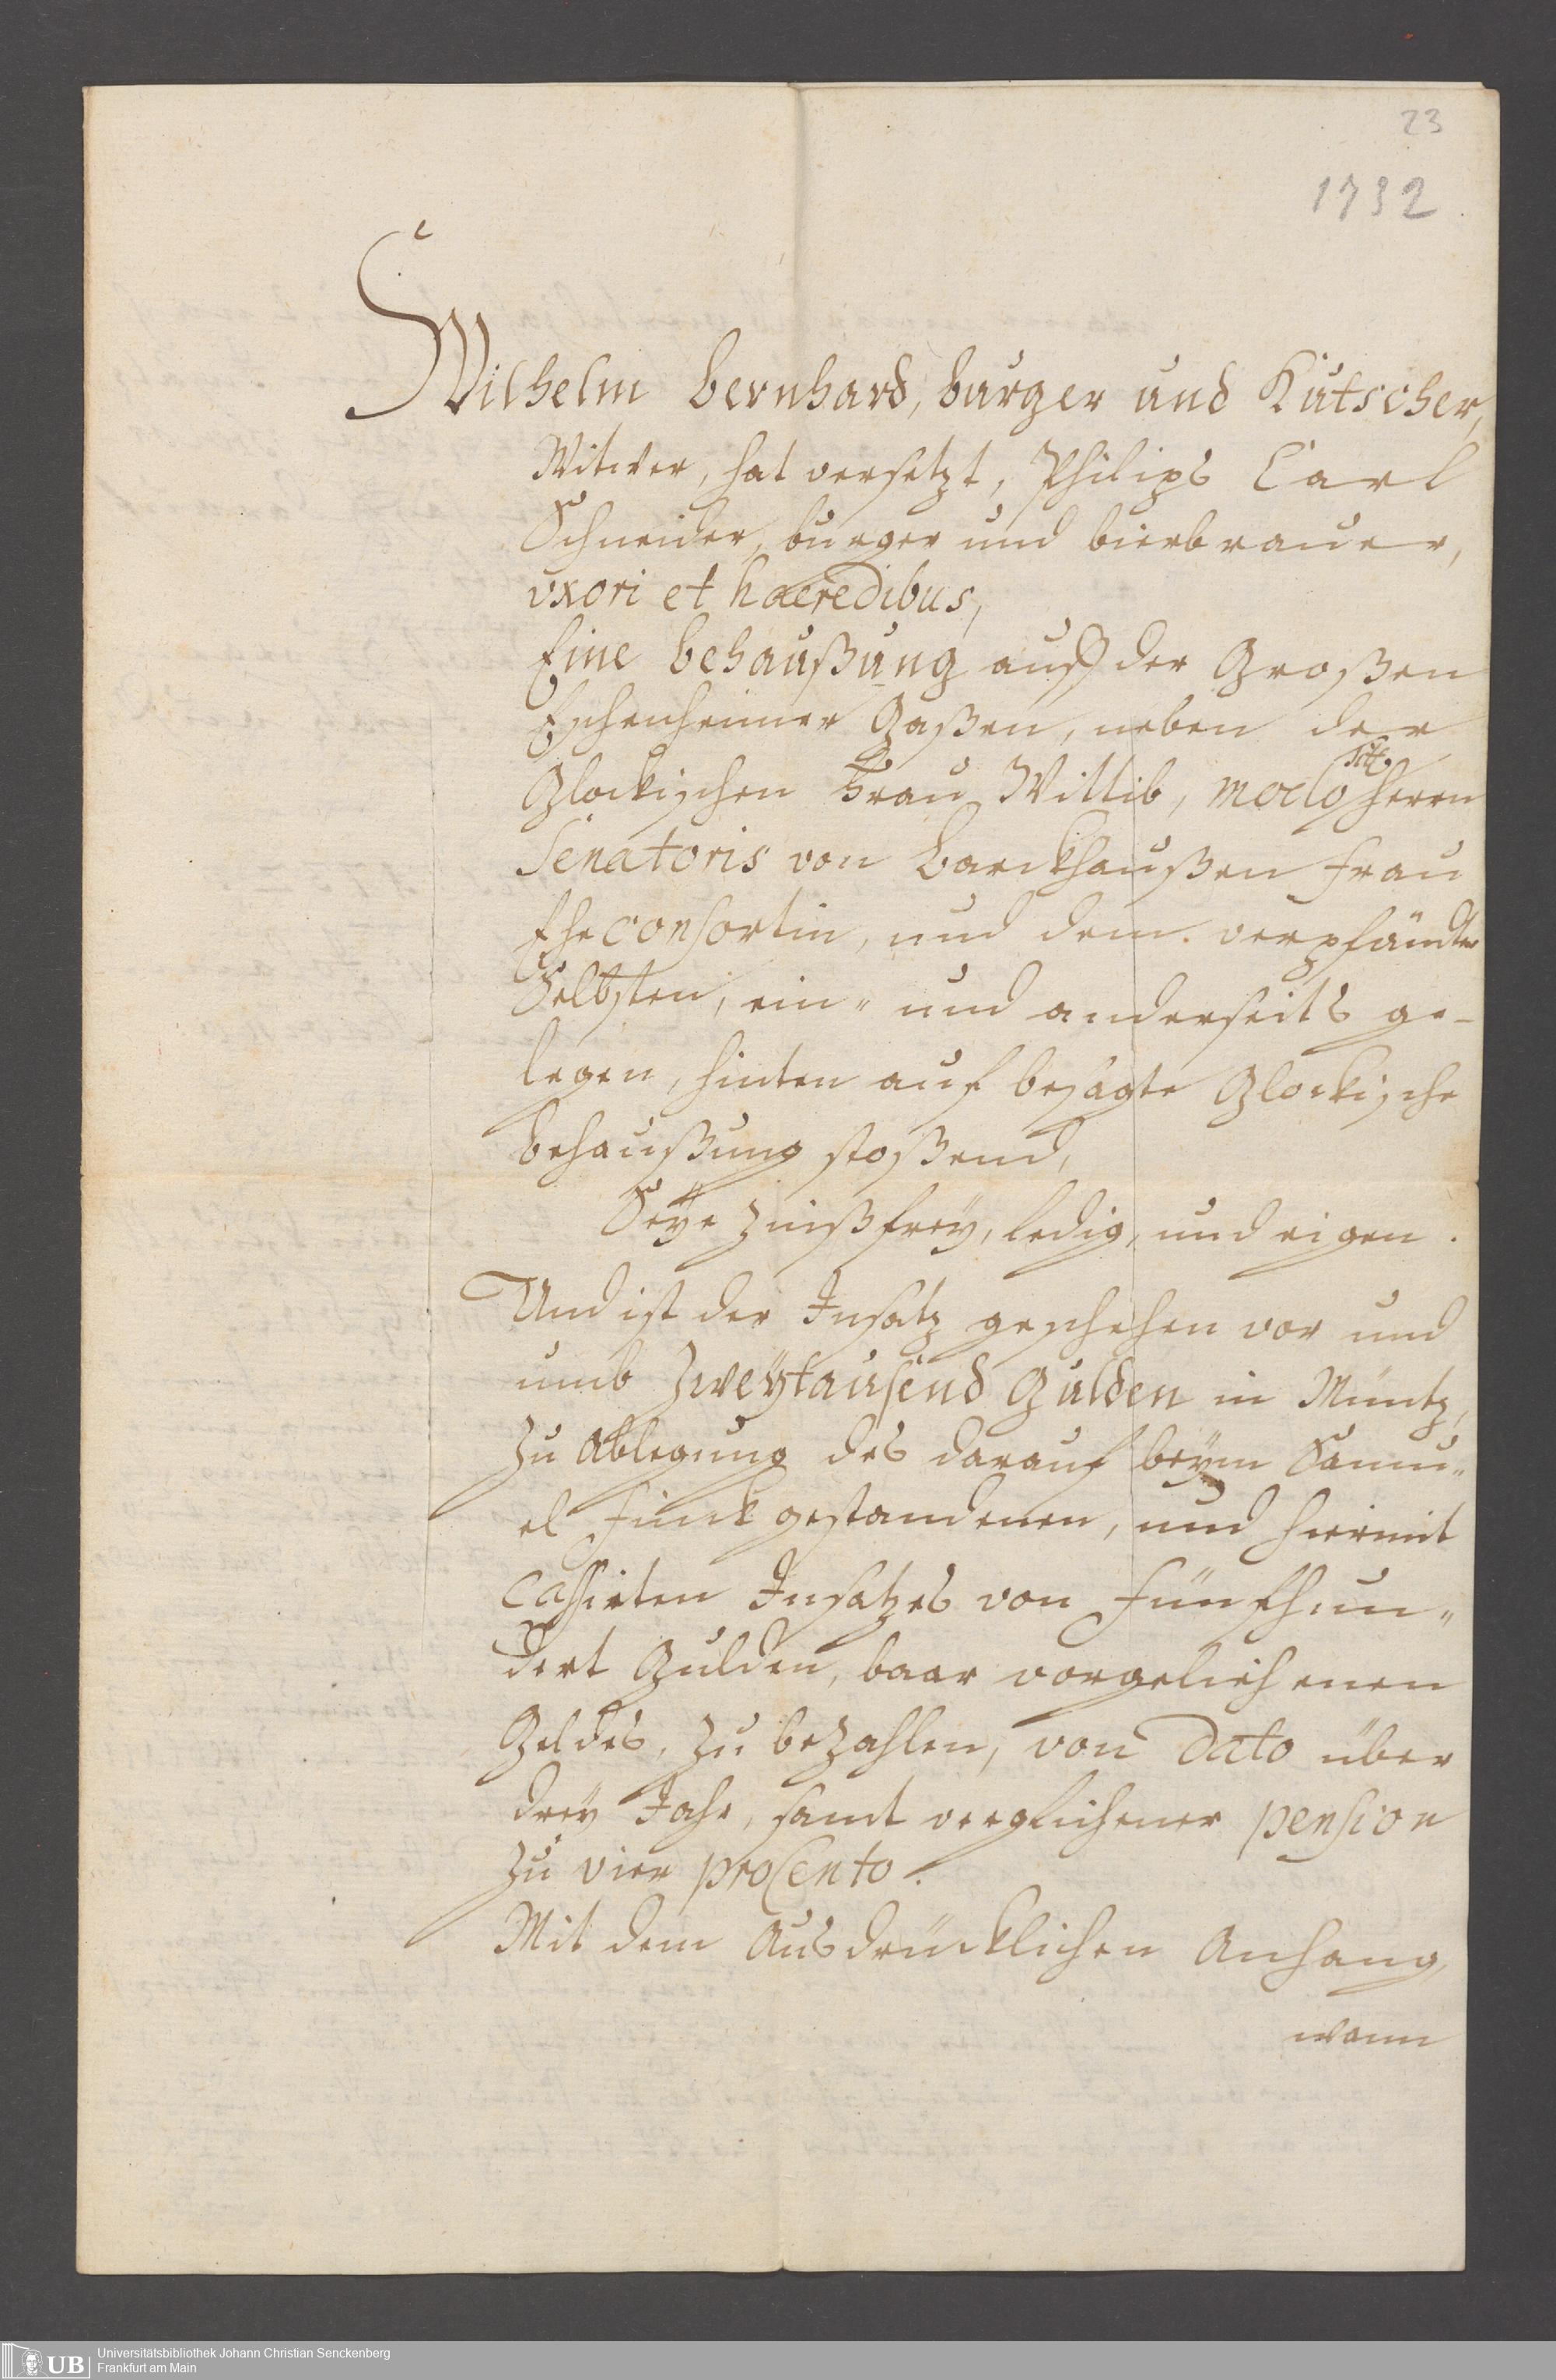 23
1732
Wilhelm Bernhard, burger und Kutscher,
Witwer, hat versetzt, Philips Carl
Schneider, burger und bierbrauer,
uxori et haeredibus,
Eine behaußung auff der Großen
Eschenheimer Gaßen, neben der
Glockischen Frau Wittib, modo Herrn
Senatoris von Barckhaußen Frau
Eheconsortin, und dem verpfändter
Selbsten, ein- und anderseits ge-
legen, hinten auf besagte Glockische
behaußung stoßend,
Seÿe zinßfreÿ, ledig, und eigen.
Und ist der Insatz geschehen vor und
umb Zweÿtausend Gulden in Müntz,
zu Ablegung des darauf beÿm Samu-
el Funck gestandenen, und hiermit
cassirten Insatzes von Fünfhun-
dert Gulden, baar vorgeliehenen
Geldes, zu bezahlen, von Dato über
dreÿ Jahr, samt verglichener pension
zu vier proCento.
Mit dem Ausdrücklichen Anhang,
wann
UB
Universitätsbibliothek Johann Christian Senckenberg
Frankfurt am Main